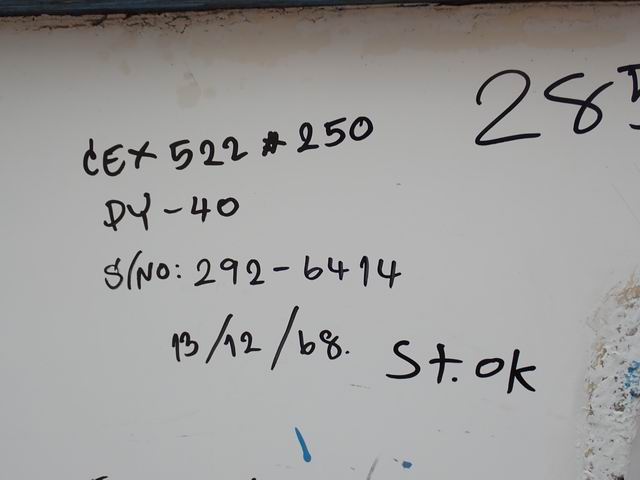 CEX 522 # 250
DY-40
S/NO: 292-6414
13/12/68.
St. OK
285